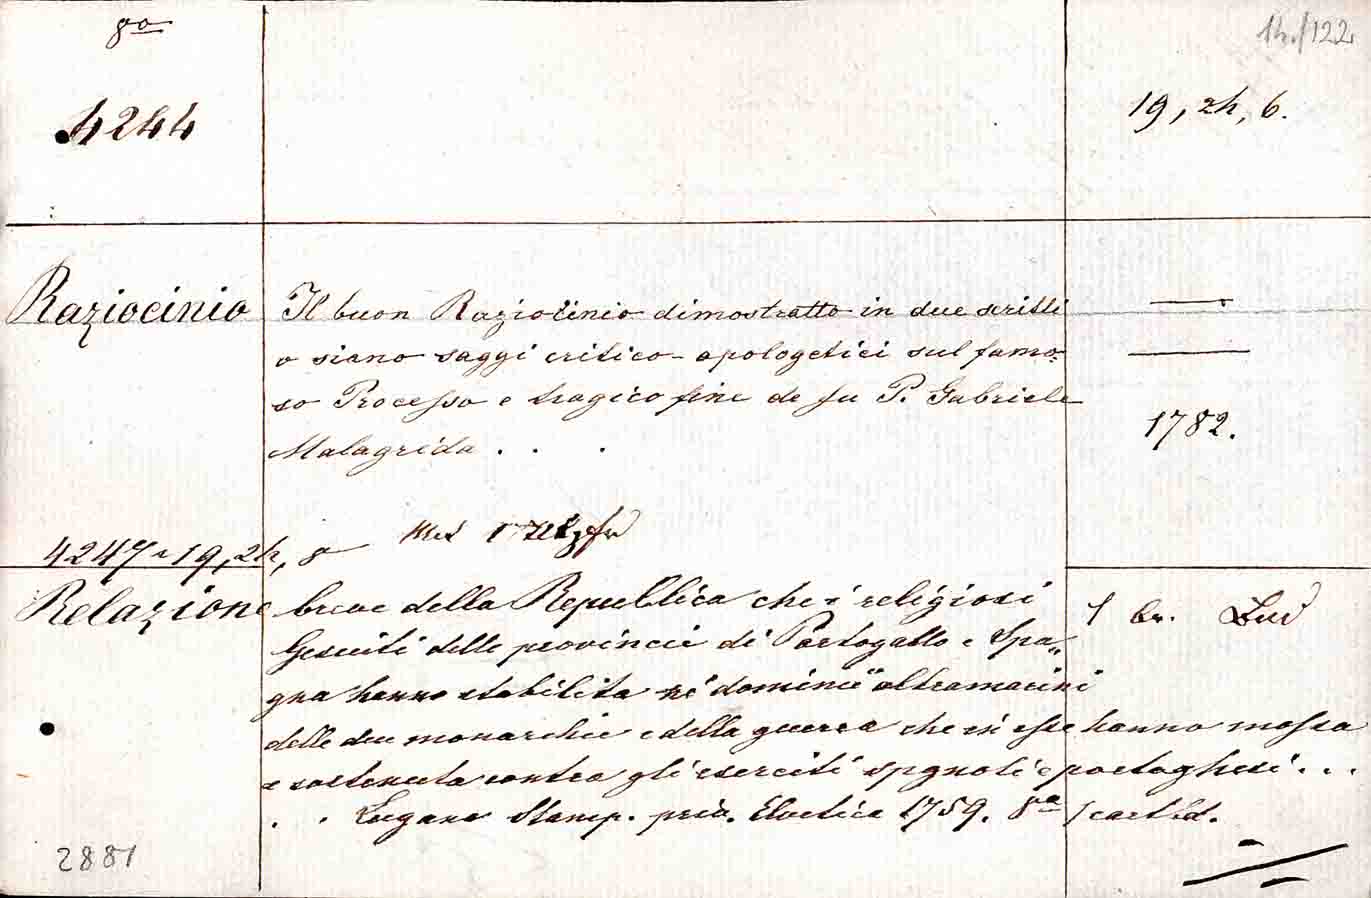 8o
14./122
4244
19, 2h, 6.
Raziocinio
Il buon Raziocinio dimostratto in due scritti
o siano saggi critico-apologetici sul famo-
so Processo e tragico fine de fu P. Gabriele
Malagrida . . .
1782.
4247 19, 2h, 8
Relazione breve della Republica che i religiosi
Gesuiti delle provincie di Portogallo e Spa„
gna hanno stabilita ne' dominii oltramarini
delle due monarchie e della guerra che in esse hanno mossa
e sostenuta contro gli eserciti spgnoli e portoghesi . . .
. . Lugano Stamp. priv. Elvetica 1759. 8o
1 br.
2881